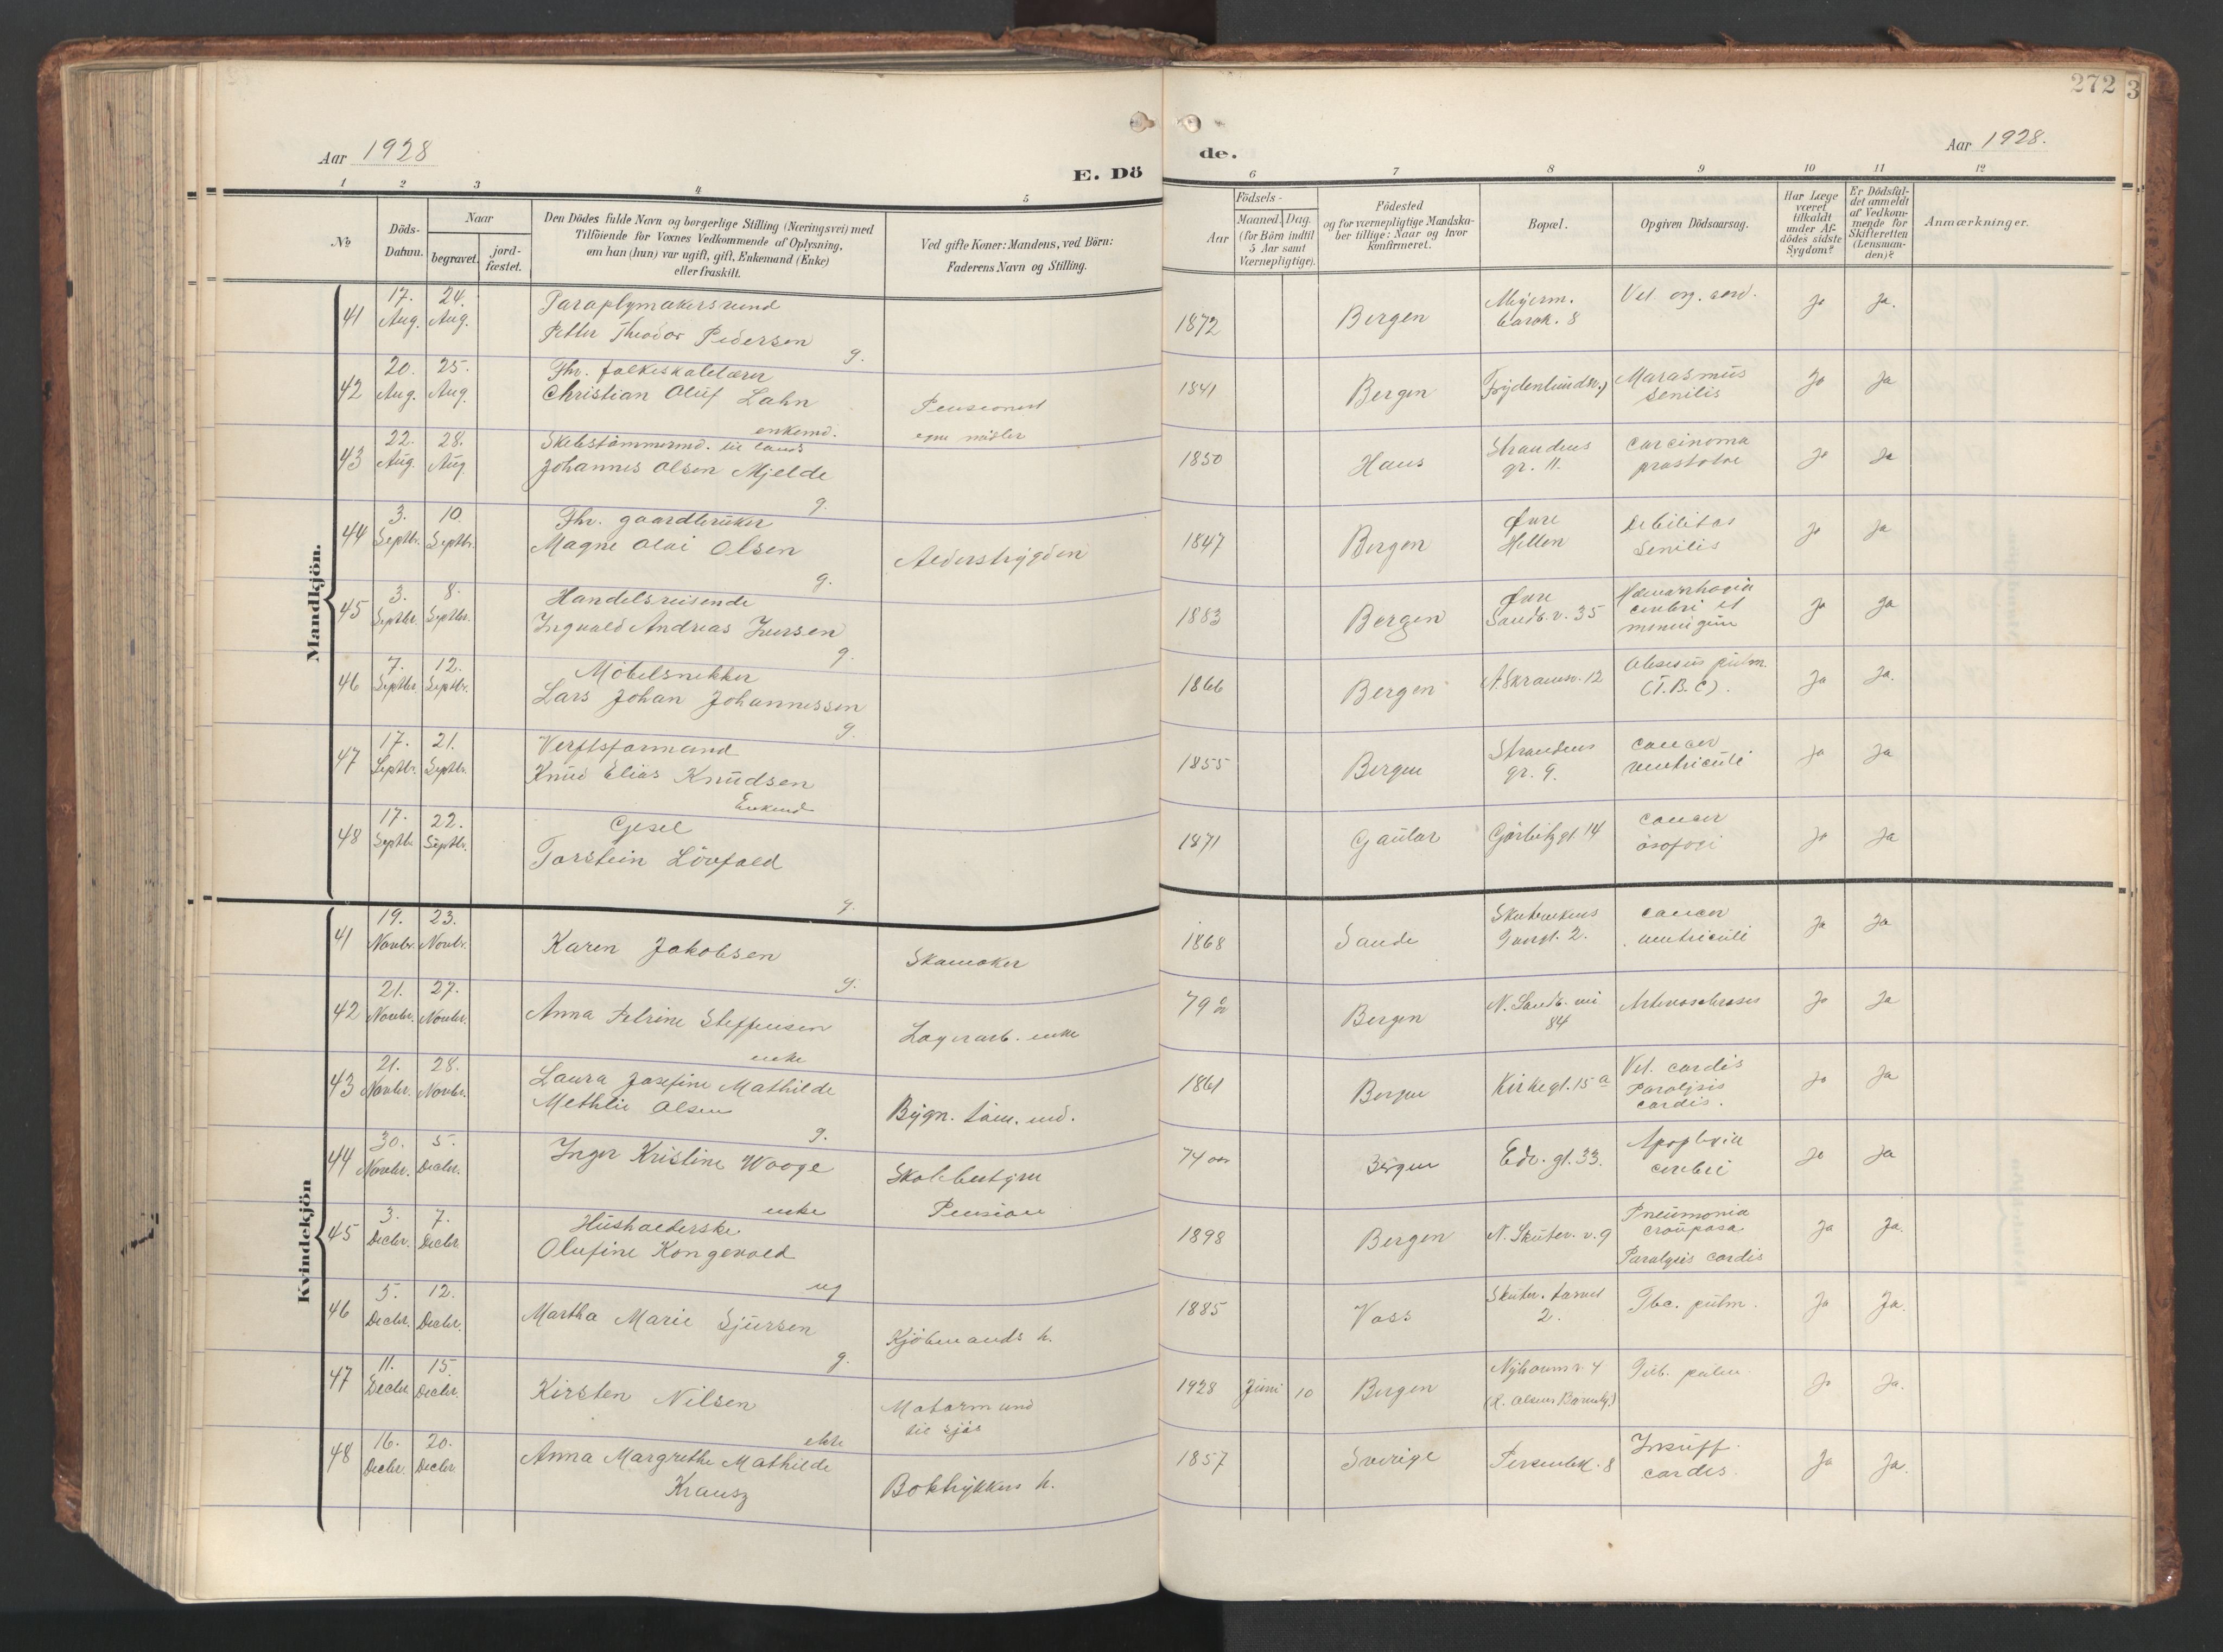 272
3
Aar 1928
E. Dö
de.
Aar 1928.
1 2 3 4 5 6 7 8 9 10 11 12
No
Döds-
Datum.
Naar
begravet.
jord-
fæstet.
Den Dödes fulde Navn og borgerlige Stilling (Næringsvei) med
Tilföiende for Voxnes Vedkommende af Oplysning,
om han (hun) var ugift, gift, Enkemand (Enke)
eller fraskilt.
Ved gifte Koner: Mandens, ved Börn:
Faderens Navn og Stilling.
Födsels-
Aar
Maaned.
Dag.
(for Börn indtil
5 Aar samt
Værnepligtige).
Födested
og for værnepligtige Mandska-
ber tillige: Naar og hvor
konfirmeret.
Bopæl.
Opgiven Dödsaarsag.
Har Læge
været
tilkaldt
under Af-
dödes sidste
Sygdom?
Er Dödsfal-
det anmeldt
af Vedkom-
mende for
Skifteretten
(Lensman-
den)?
Anmærkninger.
Mandkjön.
41 17. Aug. 24. Aug.
Paraplymakersvend
Petter Theodor Pedersen
g.
1872 Bergen
8
Vet. org. cord.
Ja Ja.
42 20. Aug. 25. Aug.
Fhv. folkeskolelærer
Christian Oluf Lahn
enkemd.
Pensionert
egne midler
1841 Bergen
Marasmus
senilis
Ja Ja
43 22. Aug. 28. Aug
Skibstömmermd. til lands
Johannes Olsen Mjelde
g.
1850 Haus
Strandens
gr. 11.
Carcinoma
prostatae
Ja Ja
44 3. Septbr. 10 Septbr.
Fhv. gaardbruker
Magne Olai Olsen
g.
Alderstrygden
1847 Bergen
Øvre
Hellen
Debilitas
Senilis
Ja Ja
45 3. Septbr. 8. Septbr.
Handelsreisende
Ingvald Andreas Iversen
g.
1883 Bergen
Øvre
Sandv. v. 35
Hæmorrhagia
cerebri et
meningum
Ja Ja
46 7. Septbr. 12. Septbr.
Möbelsnekker
Lars Johan Johannessen
g.
1866 Bergen
A. Skramsv. 12
pulm.
(T.B.C).
Ja Ja.
47 17. Septbr. 21. Septbr.
Verftsformand
Knud Elias Knudsen
Enkemd
1855 Bergen
Strandens
gr. 9.
Cancer
ventriculi
Ja Ja
48 17. Septbr. 22. Septbr.
Gjesel
Torstein Lövfald
g.
1871 Gaular
Görbitzgt 14
Cancer
ösofagi
Ja Ja
Kvindekjön
41 19. Novbr. 23. Novbr.
Karen Jakobsen
g.
Skomaker
1868 Sande
2.
Cancer
ventriculi
Ja Ja
42 21. Novbr. 27. Novbr.
Anna Petrine Steffensen
enke
Lagerarb. enke
79 år Bergen
N. Sandv. vei
84
Arteriosclerosis
Ja Ja
43 21. Novbr. 28. Novbr.
Laura Josefine Mathilde
Methlie Olsen
g.
Bygn. töm. md.
1861 Bergen
Kirkegt. 15 a
Vit. cordis
Paralysis
cordis.
Ja Ja
44 30. Novbr. 5. Decbr.
Inger Kristine Wooge
enke
Skolebestyrer
Pension
74 aar Bergen
Edv. gt. 33.
Apoplexia
cerebri
Ja Ja
45 3. Decbr. 7. Decbr
Husholderske
Olufine Kongevold
ug
1898 Bergen
N. Skutev. v. 9
Pneumonia
crouposa
Paralysis cordis
Ja Ja.
46 5. Decbr. 12. Decbr.
Martha Marie Sjursen
g.
Kjöbmands h.
1885 Voss
Skutev. torvet
2.
Tbc. pulm.
Ja Ja.
47 11. Decbr 15. Decbr.
Kirsten Nilsen
ekte
Motormand
til sjös
1928 Juni 10 Bergen
Nyhavnsv. 4
Tub. pulm.
Ja Ja.
48 16. Decbr. 20. Decbr
Anna Margrethe Mathilde
Krausz
Boktrykkers h.
1857 Sverige
8
Insuff.
cordis.
Ja Ja.